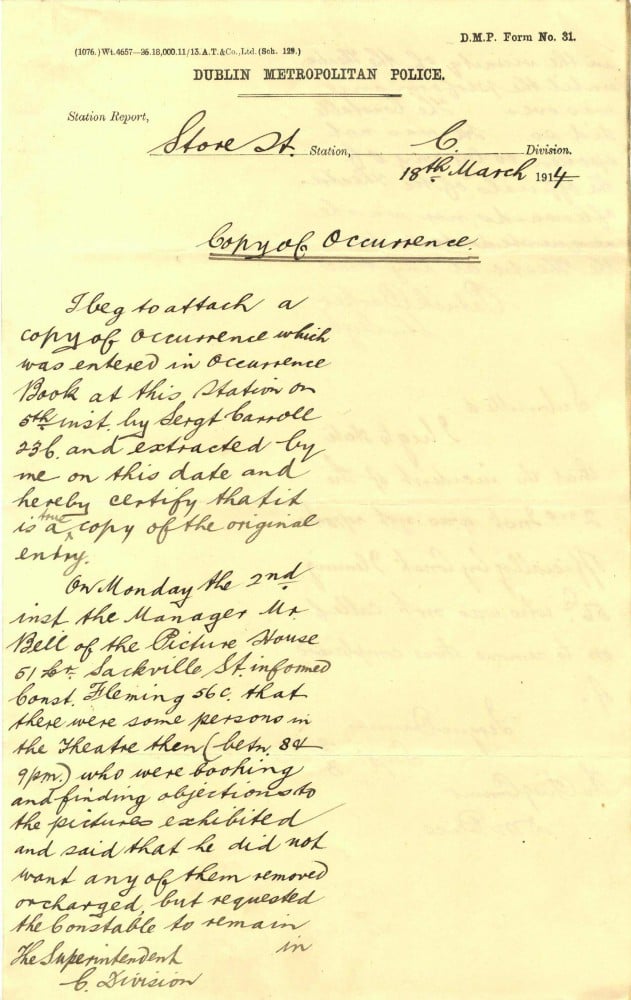 D.M.P. Form No. 31.
(1076.) Wt. 4657—26. 18,000. 11/13. A.T. & Co., Ltd. (Sch. 129.)
DUBLIN METROPOLITAN POLICE.
Station Report,
Store St. Station, C. Division.
18th March 1914
Copy of Occurrence.
I beg to attach a
copy of Occurrence which
was entered in Occurrence
Book at this Station on
5th inst. by Sergt Carroll
23C. and extracted by
me on this date and
hereby certify that it
is a true copy of the original
entry.
On Monday the 2nd
inst the Manager Mr.
Bell of the Picture House
51 Lr. Sackville St. informed
Const. Fleming 56C. that
there were some persons in
the Theatre then (betn. 8 &
9pm.) who were booking
and finding objections to
the pictures exhibited
and said that he did not
want any of them removed
or charged, but requested
the Constable to remain
in
The Superintendent
C. Division